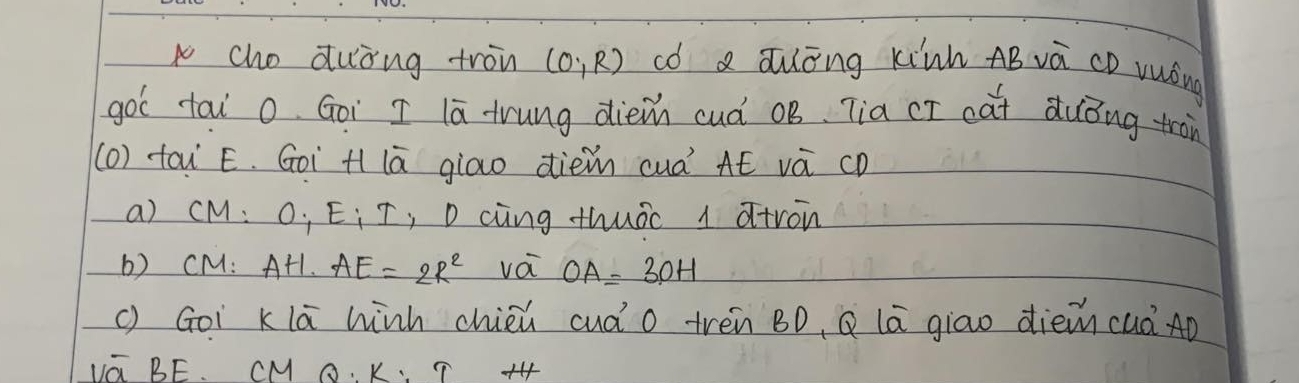 No.
* Cho đường tròn (O; R) có 2 đường kính AB và CD vuông
góc tại O. Gọi I là trung điểm của OB. Tia CI cắt đường tròn
(O) tại E. Gọi H là giao điểm của AE và CD
a) CM: O; E; I; D cùng thuộc 1 đtròn
b) CM: AH. AE = 2R² và OA = 3OH
c) Gọi K là hình chiếu của O trên BD, Q là giao điểm của AD
và BE. CM Q; K; I